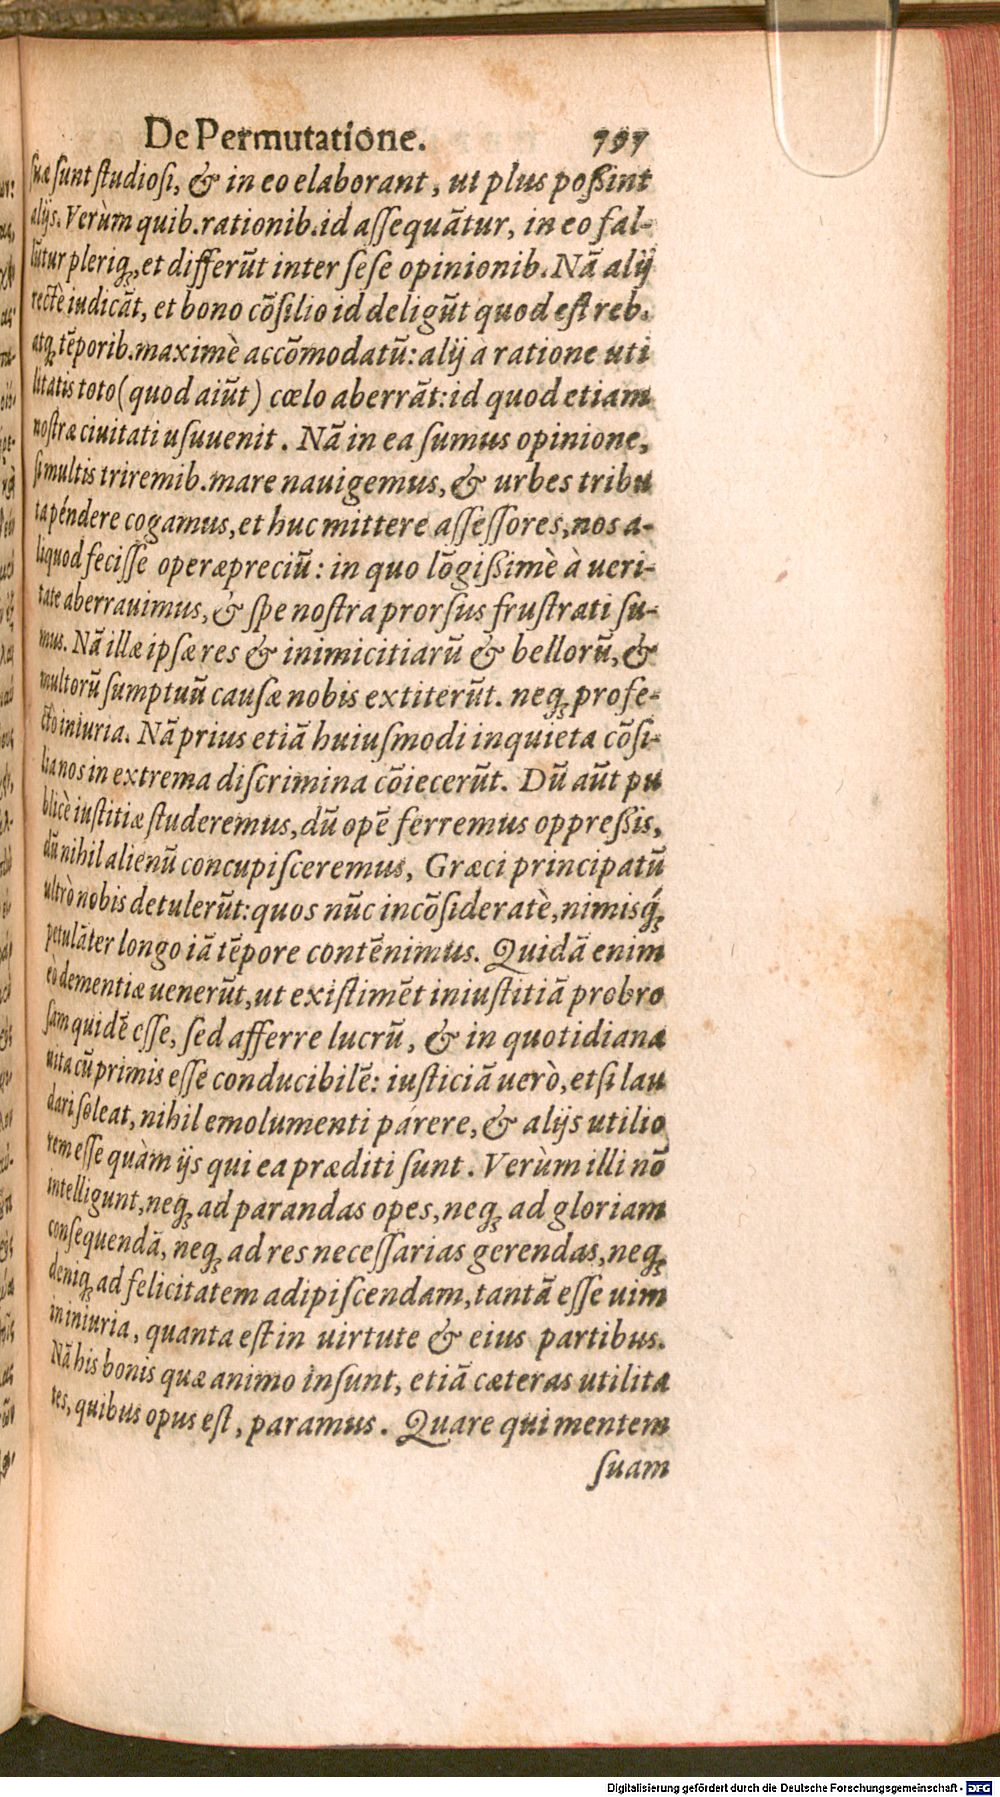 De Permutatione. 797
suæ sunt studiosi, & in eo elaborant, ut plus possint
alijs. Verùm quib. rationib. id assequãtur, in eo fal-
lũtur pleriq;, et differũt inter sese opinionib. Nã alij
rectè iudicãt, et bono cõsilio id deligũt quod est reb.
atq; tẽporib. maximè accõmodatũ: alij a ratione uti
litatis toto (quod aiũt) cœlo aberrãt: id quod etiam
nostræ ciuitati usuuenit. Nã in ea sumus opinione,
si multis triremib. mare nauigemus, & urbes tribu
ta péndere cogamus, et huc mittere assessores, nos a-
liquod fecisse operæpreciũ: in quo lõgissimè à ueri-
tate aberrauimus, & spe nostra prorsus frustrati su-
mus. Nã illæ ipsæ res & inimicitiarũ & bellorũ, &
multorũ sumptuũ causæ nobis extiterũt. neq; profe-
cto iniuria. Nã prius etiã huiusmodi inquieta cõsi-
lia nos in extrema discrimina cõiecerũt. Dũ aũt pu
blicè iustitiæ studeremus, dũ opẽ ferremus oppressis,
dũ nihil alienũ concupisceremus, Græci principatũ
ultrò nobis detulerũt: quos nũc incõsideratè, nimisq́;
petulãter longo iã tẽpore contẽnimus. Quidã enim
eò dementiæ uenerũt, ut existimẽt iniustitiã probro
sam quidẽ esse, sed afferre lucrũ, & in quotidiana
uita cũ primis esse conducibilẽ: iusticiã uerò, etsi lau
dari soleat, nihil emolumenti párere, & alijs utilio
rem esse quàm ijs qui ea præditi sunt. Verùm illi nõ
intelligunt, neq; ad parandas opes, neq; ad gloriam
consequendã, neq; ad res necessarias gerendas, neq;
deniq; ad felicitatem adipiscendam, tantã esse uim
in iniuria, quanta est in uirtute & eius partibus.
Nã his bonis quæ animo insunt, etiã cæteras utilita
tes, quibus opus est, paramus. Quare qui mentem
suam
Digitalisierung gefördert durch die Deutsche Forschungsgemeinschaft - DFG